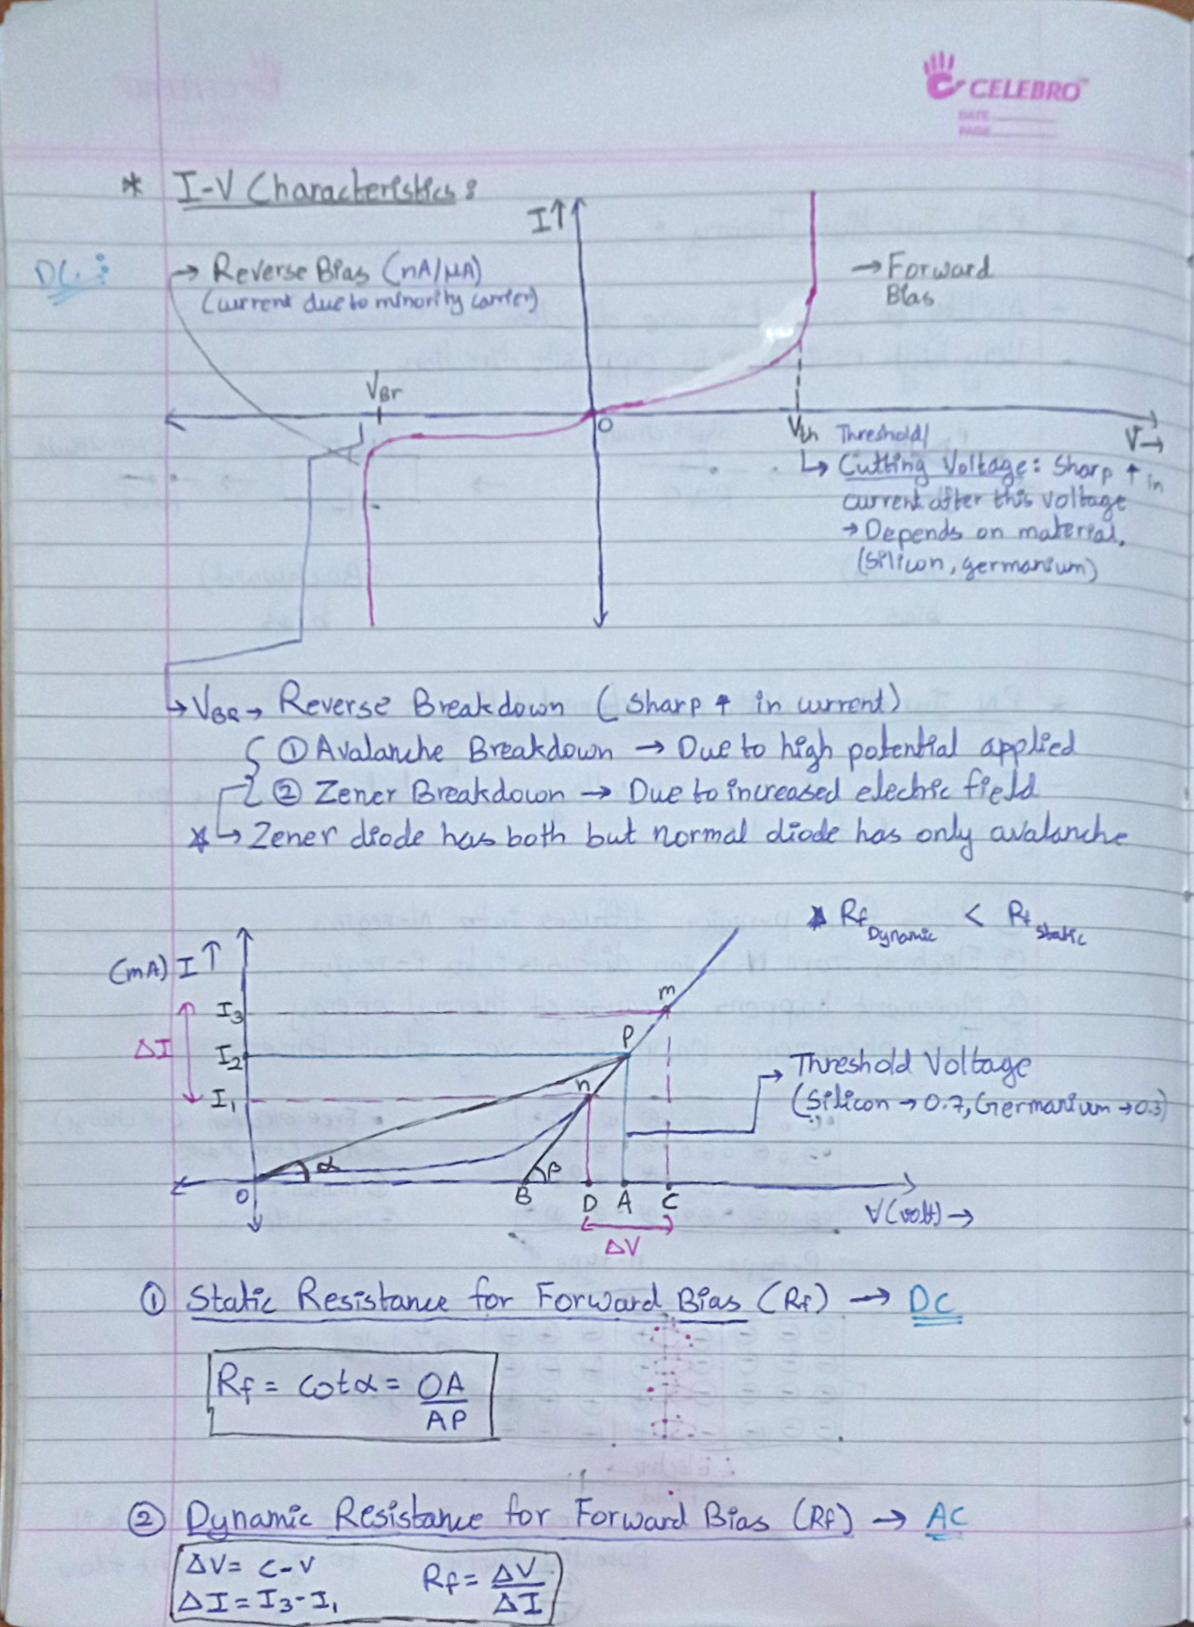 CELEBRO
DATE
PAGE
* I-V Characteristics :
I↑
DC :
→ Reverse Bias (nA/μA)
(current due to minority carrier)
→ Forward
Bias
VBr
O
Vth Threshold/
V→
↳ Cutting Voltage: Sharp ↑ in
current after this voltage
→ Depends on material.
(Silicon, germanium)
↳ VBR → Reverse Breakdown (sharp ↑ in current)
① Avalanche Breakdown → Due to high potential applied
② Zener Breakdown → Due to increased electric field
* ↳ Zener diode has both but normal diode has only avalanche
* Rf Dynamic < Rf Static
(mA) I ↑
I3
m
ΔI
I2
P
I1
n
→ Threshold Voltage
(Silicon → 0.7, Germanium → 0.3)
α
β
O
B D A C
V(volt) →
ΔV
① Static Resistance for Forward Bias (Rf) → DC
Rf = cotα = OA/AP
② Dynamic Resistance for Forward Bias (Rf) → AC
ΔV = C-V
ΔI = I3-I1
Rf = ΔV/ΔI